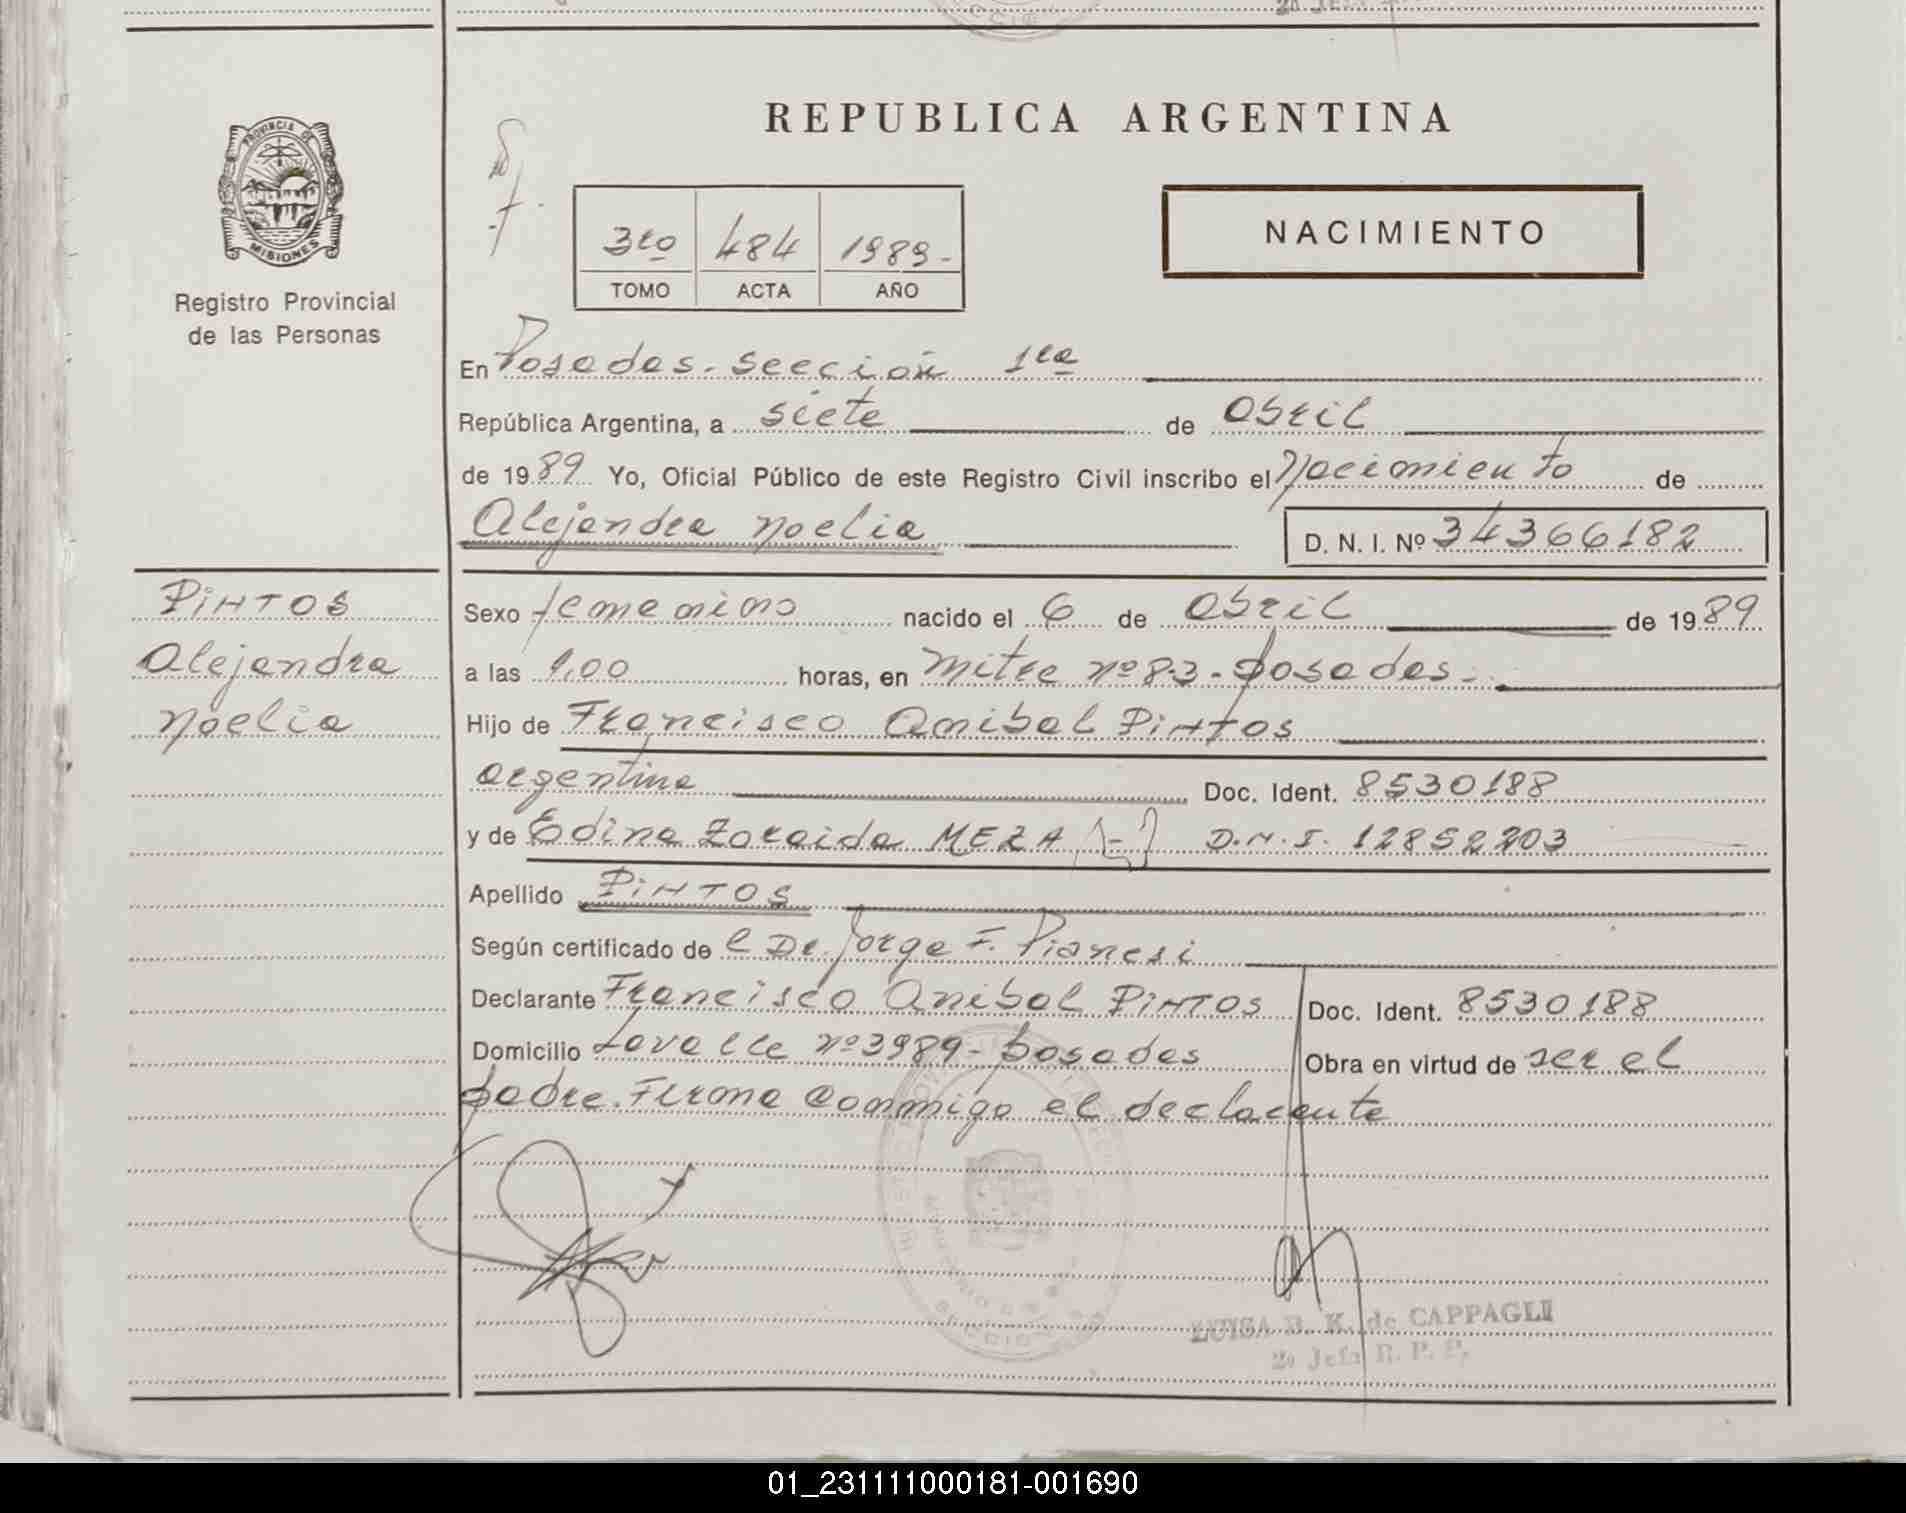 REPUBLICA ARGENTINA
PROVINCIA DE
MISIONES
Registro Provincial
de las Personas
3ro 484 1989-
TOMO ACTA AÑO
NACIMIENTO
En Posadas-sección 1ra
República Argentina, a siete de Abril
de 1989 Yo, Oficial Público de este Registro Civil inscribo el Nacimiento de
Alejandra Noelia D. N. I. Nº 34366182
PINTOS
Alejandra
Noelia
Sexo femenino nacido el 6 de Abril de 1989
a las 9,00 horas, en Mitre nº 83-posadas-
Hijo de Francisco Anibal PINTOS
argentina Doc. Ident. 8530188
y de Edina Zoraida MEZA D.N.I. 12852203
Apellido PINTOS
Según certificado de l Dr. Jorge F. Pianesi
Declarante Francisco Anibal PINTOS Doc. Ident. 8530188
Domicilio Lavalle nº 3989-posadas Obra en virtud de ser el
padre. Firma conmigo el declarante
LUISA B. K. de CAPPAGLI
2a Jefa R. P. P.
01_231111000181-001690